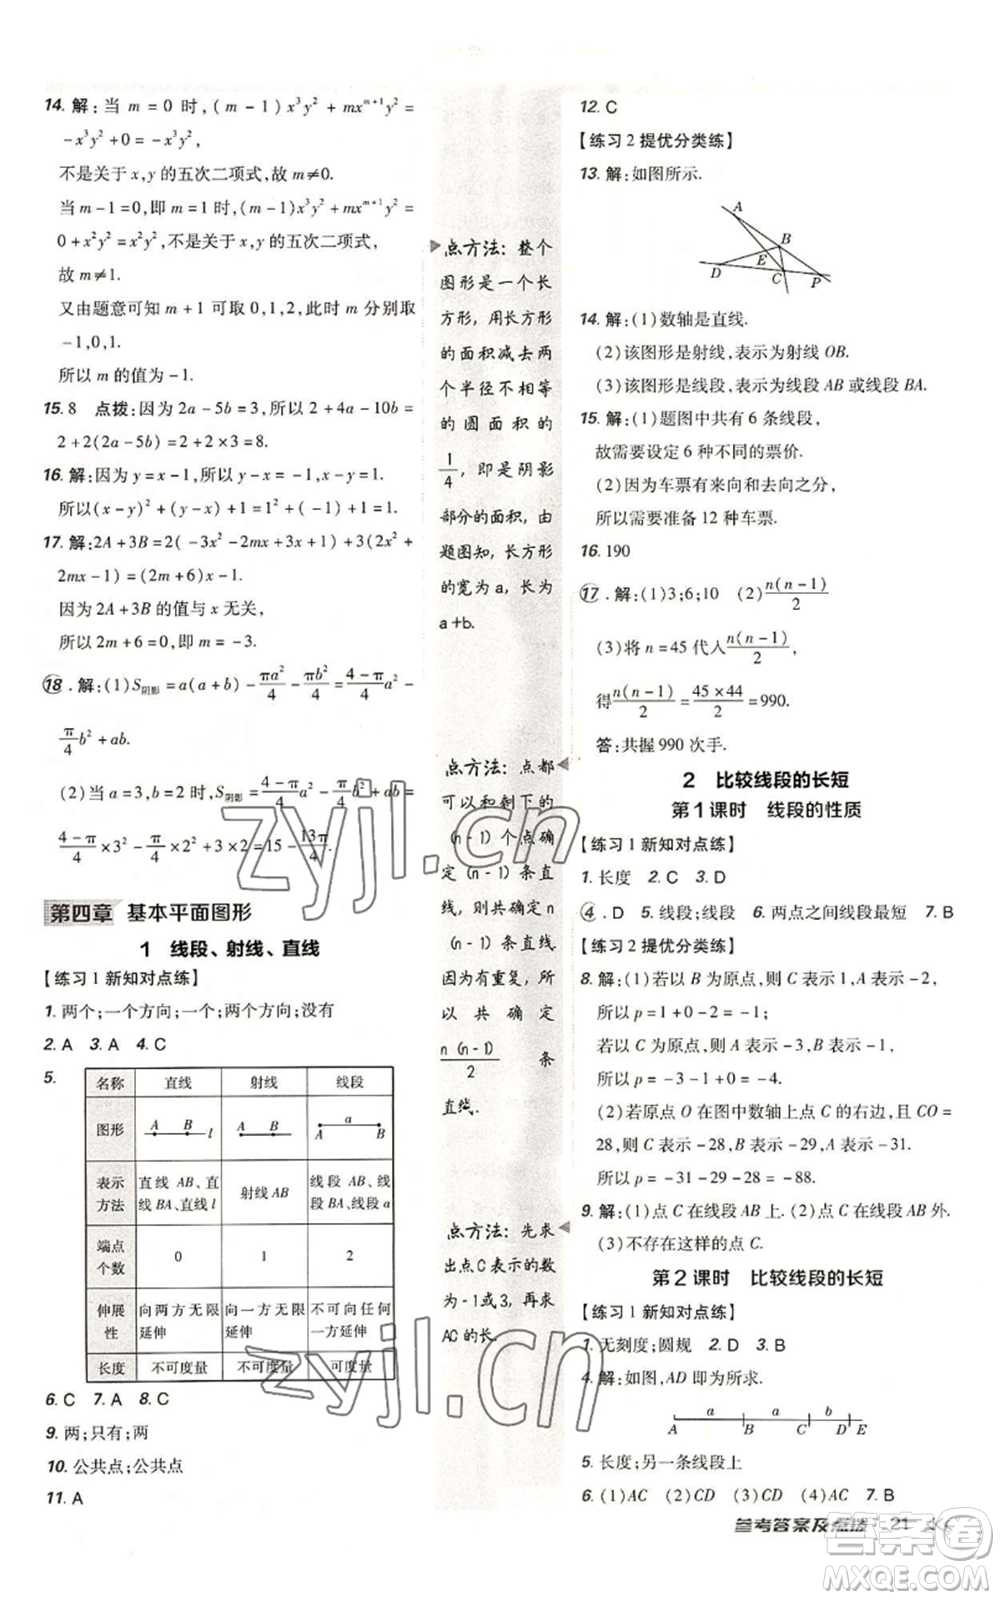 14. 解:当 m = 0 时,(m-1)x³y² + mxᵐ⁺¹y² =
-x³y²+0=-x³y²,
不是关于 x,y 的五次二项式,故 m≠0.
当 m-1=0,即 m=1 时,(m-1)x³y²+mxᵐ⁺¹y²=
0+x²y²=x²y²,不是关于 x,y 的五次二项式,
故 m≠1.
又由题意可知 m+1 可取 0,1,2,此时 m 分别取
-1,0,1.
所以 m 的值为-1.
15. 8 点拨:因为 2a-5b=3,所以 2+4a-10b=
2+2(2a-5b)=2+2×3=8.
16. 解:因为 y=x-1,所以 y-x=-1,x-y=1.
所以(x-y)²+(y-x)+1=1²+(-1)+1=1.
17. 解:2A+3B=2(-3x²-2mx+3x+1)+3(2x²+
2mx-1)=(2m+6)x-1.
因为 2A+3B 的值与 x 无关,
所以 2m+6=0,即 m=-3.
18. 解:(1)S阴影=a(a+b)-πa²/4-πb²/4=(4-π)/4 a²-
π/4 b²+ab.
(2)当 a=3,b=2 时,S阴影=(4-π)/4 a²-π/4 b²+ab=
(4-π)/4×3²-π/4×2²+3×2=15-13π/4.
第四章 基本平面图形
1 线段、射线、直线
【练习1 新知对点练】
1. 两个;一个方向;一个;两个方向;没有
2. A 3. A 4. C
5.
名称 直线 射线 线段
图形 A B l A B A a B
表示方法 直线 AB、直线 BA、直线 l 射线 AB 线段 AB、线段 BA、线段 a
端点个数 0 1 2
伸展性 向两方无限延伸 向一方无限延伸 不可向任何一方延伸
长度 不可度量 不可度量 可度量
6. C 7. A 8. C
9. 两;只有;两
10. 公共点;公共点
11. A
点方法: 整个
图形是一个长
方形,用长方形
的面积减去两
个半径不相等
的圆面积的
1/4,即是阴影
部分的面积,由
题图知,长方形
的宽为a,长为
a+b.
点方法: 点都
可以和剩下的
(n-1)个点确
定(n-1)条直
线,则共确定n
(n-1)条直线.
因为有重复,所
以共确定
n(n-1)/2 条
直线.
点方法: 先求
出点C表示的数
为-1或3,再求
AC的长.
12. C
【练习2 提优分类练】
13. 解:如图所示.
A B D E C P
14. 解:(1)数轴是直线.
(2)该图形是射线,表示为射线 OB.
(3)该图形是线段,表示为线段 AB 或线段 BA.
15. 解:(1)题图中共有 6 条线段,
故需要设定 6 种不同的票价.
(2)因为车票有来向和去向之分,
所以需要准备 12 种车票.
16. 190
17. 解:(1)3;6;10 (2)n(n-1)/2
(3)将 n=45 代入 n(n-1)/2,
得 n(n-1)/2=45×44/2=990.
答:共握 990 次手.
2 比较线段的长短
第1课时 线段的性质
【练习1 新知对点练】
1. 长度 2. C 3. D
4. D 5. 线段;线段 6. 两点之间线段最短 7. B
【练习2 提优分类练】
8. 解:(1)若以 B 为原点,则 C 表示 1,A 表示-2,
所以 p=1+0-2=-1;
若以 C 为原点,则 A 表示-3,B 表示-1,
所以 p=-3-1+0=-4.
(2)若原点 O 在图中数轴上点 C 的右边,且 CO=
28,则 C 表示-28,B 表示-29,A 表示-31.
所以 p=-31-29-28=-88.
9. 解:(1)点 C 在线段 AB 上. (2)点 C 在线段 AB 外.
(3)不存在这样的点 C.
第2课时 比较线段的长短
【练习1 新知对点练】
1. 无刻度;圆规 2. D 3. B
4. 解:如图,AD 即为所求.
a a b
A B C D E
5. 长度;另一条线段上
6. (1)AC (2)CD (3)CD AC 7. B
参考答案及点拨 21
zyjl.cn
zyjl.cn
答案圈
MXQE.COM